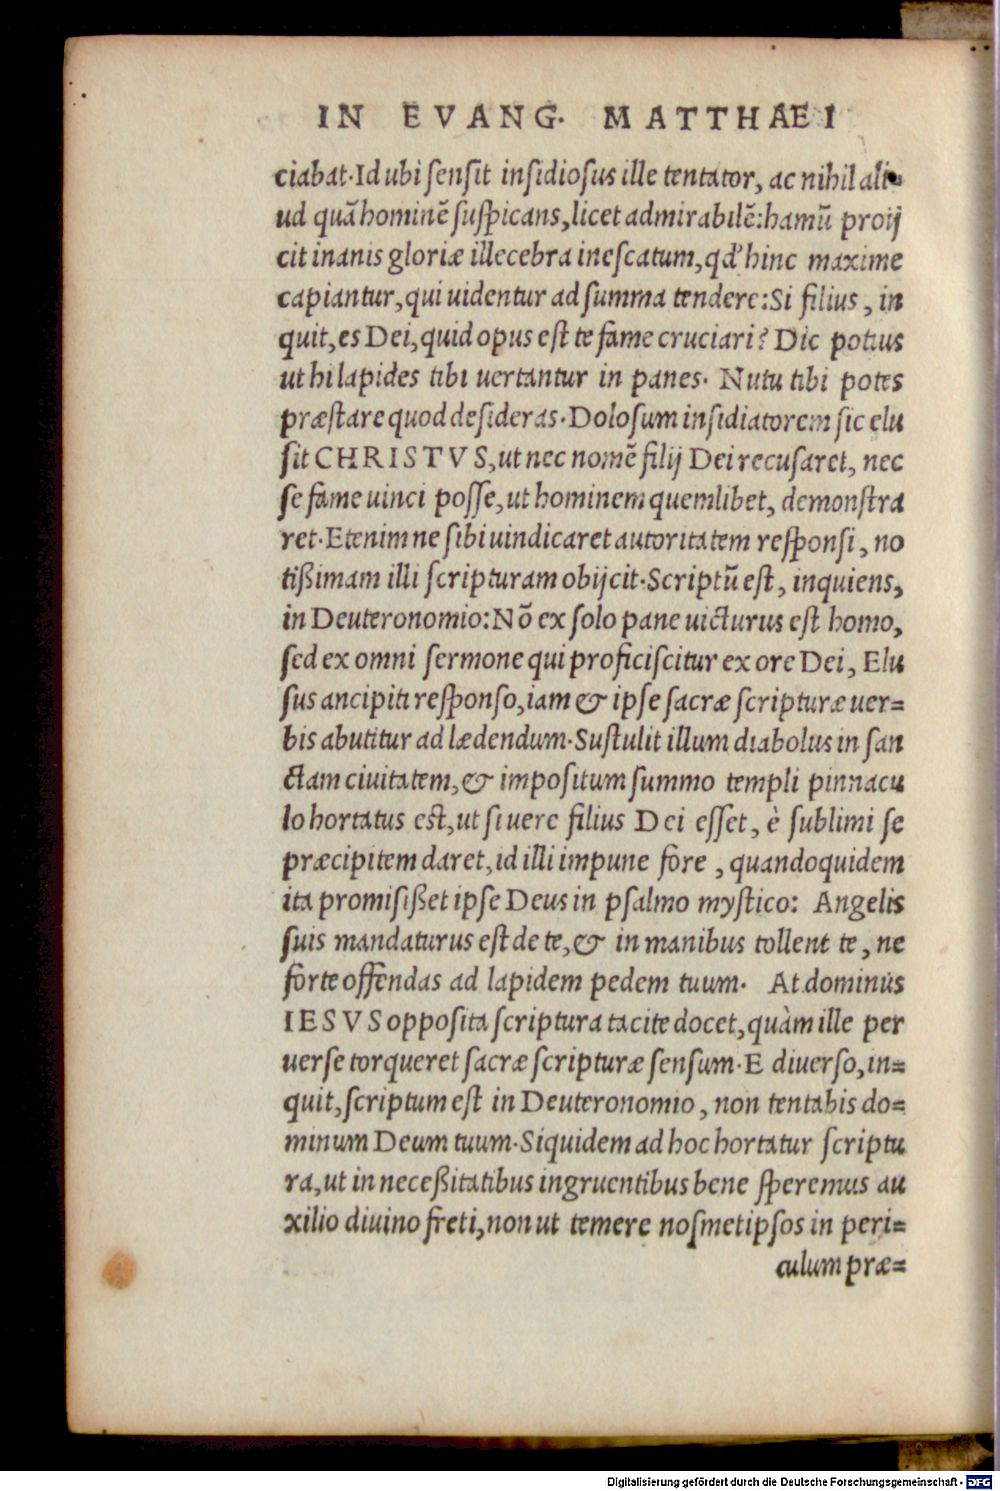 IN EVANG. MATTHAEI
ciabat. Id ubi sensit insidiosus ille tentator, ac nihil ali-
ud quā hominē suspicans, licet admirabilē: hamū proij
cit inanis gloriæ illecebra inescatum, qd' hinc maxime
capiantur, qui uidentur ad summa tendere: Si filius, in
quit, es Dei, quid opus est te fame cruciari? Dic potius
ut hi lapides tibi uertantur in panes. Nutu tibi potes
præstare quod desideras. Dolosum insidiatorem sic elu
sit CHRISTVS, ut nec nomē filij Dei recusaret, nec
se fame uinci posse, ut hominem quemlibet, demonstra
ret. Etenim ne sibi uindicaret autoritatem responsi, no
tißimam illi scripturam obijcit. Scriptū est, inquiens,
in Deuteronomio: Nō ex solo pane uicturus est homo,
sed ex omni sermone qui proficiscitur ex ore Dei, Elu
sus ancipiti responso, iam & ipse sacræ scripturæ uer-
bis abutitur ad lædendum. Sustulit illum diabolus in san
ctam ciuitatem, & impositum summo templi pinnacu
lo hortatus est, ut si uere filius Dei esset, è sublimi se
præcipitem daret, id illi impune fore, quandoquidem
ita promisißet ipse Deus in psalmo mystico: Angelis
suis mandaturus est de te, & in manibus tollent te, ne
forte offendas ad lapidem pedem tuum. At dominus
IESVS opposita scriptura tacite docet, quàm ille per
uerse torqueret sacræ scripturæ sensum. E diuerso, in-
quit, scriptum est in Deuteronomio, non tentabis do-
minum Deum tuum. Siquidem ad hoc hortatur scriptu
ra, ut in neceßitatibus ingruentibus bene speremus au
xilio diuino freti, non ut temere nosmetipsos in peri-
culum præ-
Digitalisierung gefördert durch die Deutsche Forschungsgemeinschaft - DFG